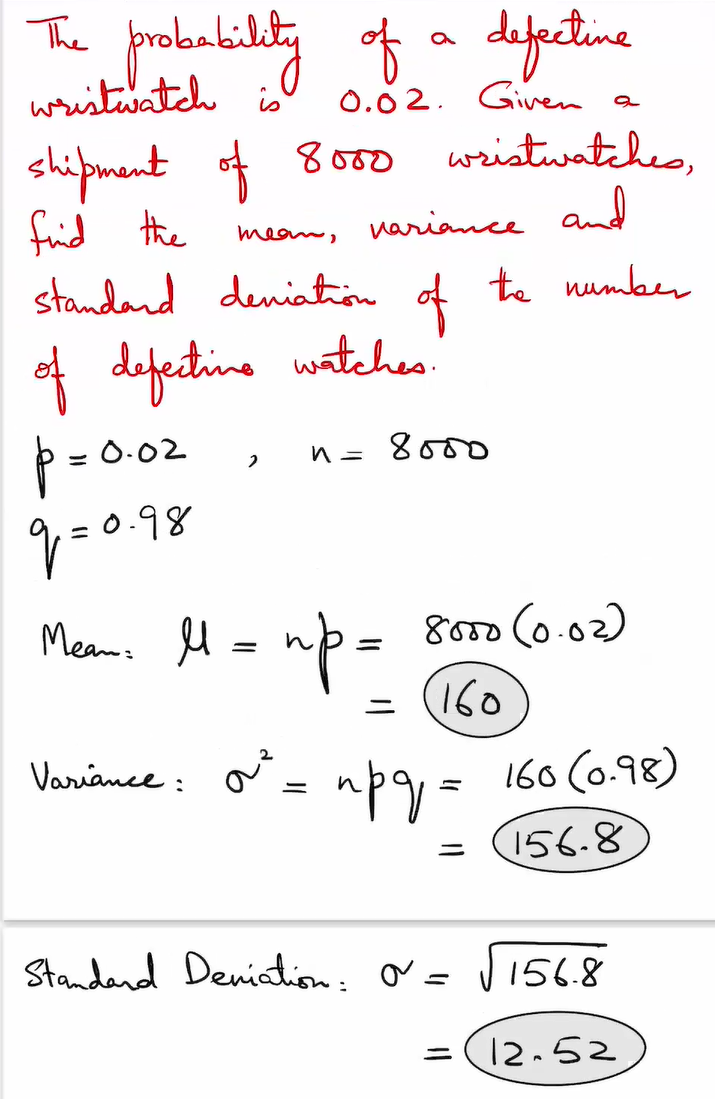 The probability of a defective
wristwatch is 0.02. Given a
shipment of 8000 wristwatches,
find the mean, variance and
standard deviation of the number
of defective watches.
p = 0.02 , n = 8000
q = 0.98
Mean: μ = np = 8000 (0.02)
= 160
Variance: σ² = npq = 160 (0.98)
= 156.8
Standard Deviation: σ = √156.8
= 12.52